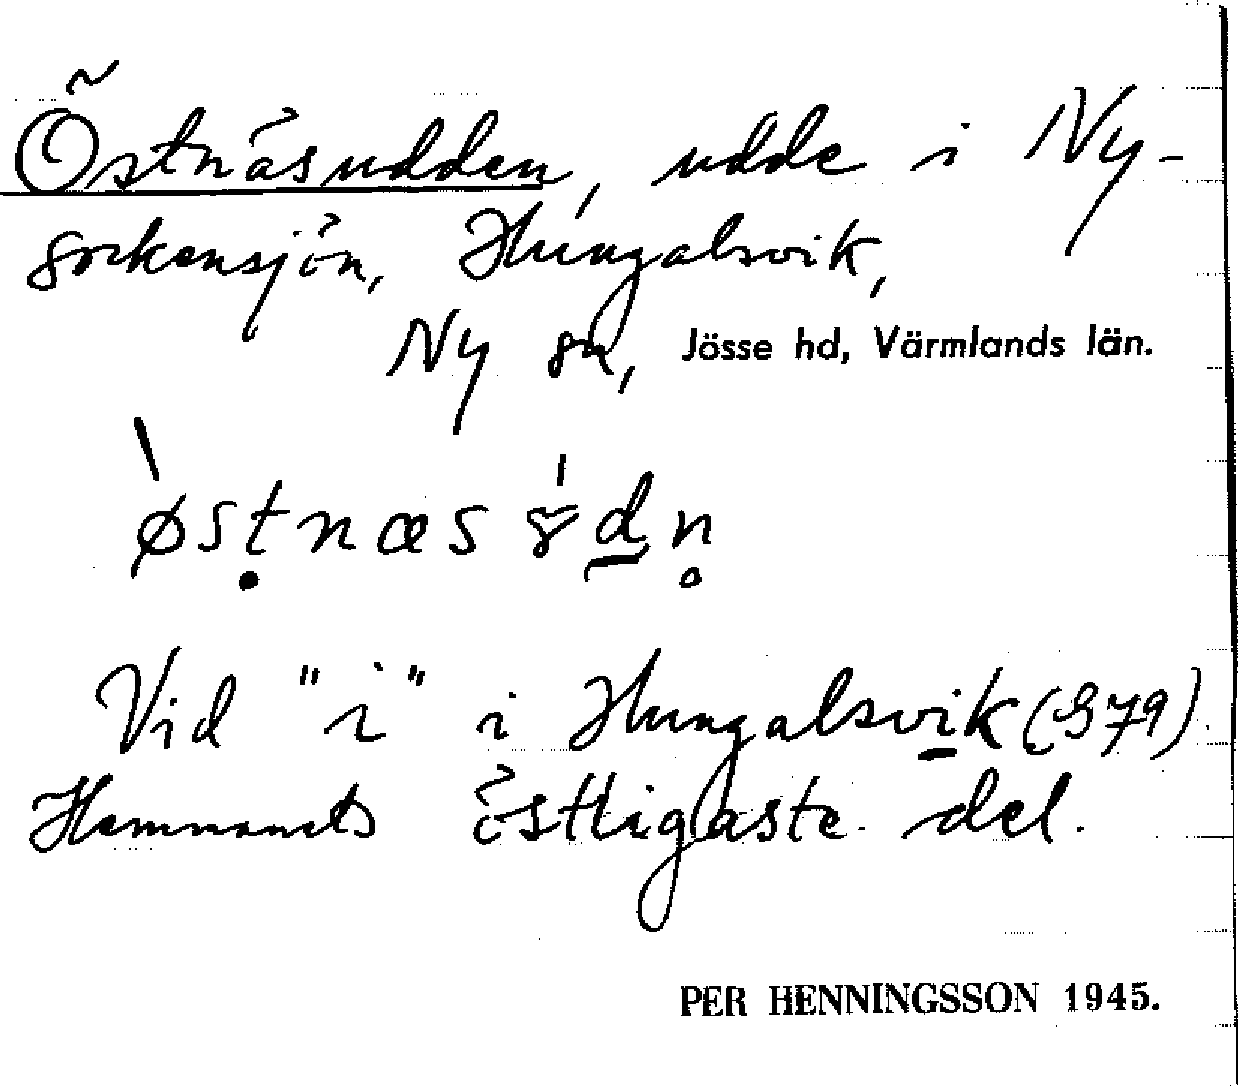 Östnäsudden, udde i Ny-
sockensjön, Hungalsvik,
Ny sn, Jösse hd, Värmlands län.
`øsṭnæs 'ȣd̲n̥
Vid "i" i Hungalsvik (979).
Hemmanets östligaste del.
PER HENNINGSSON 1945.